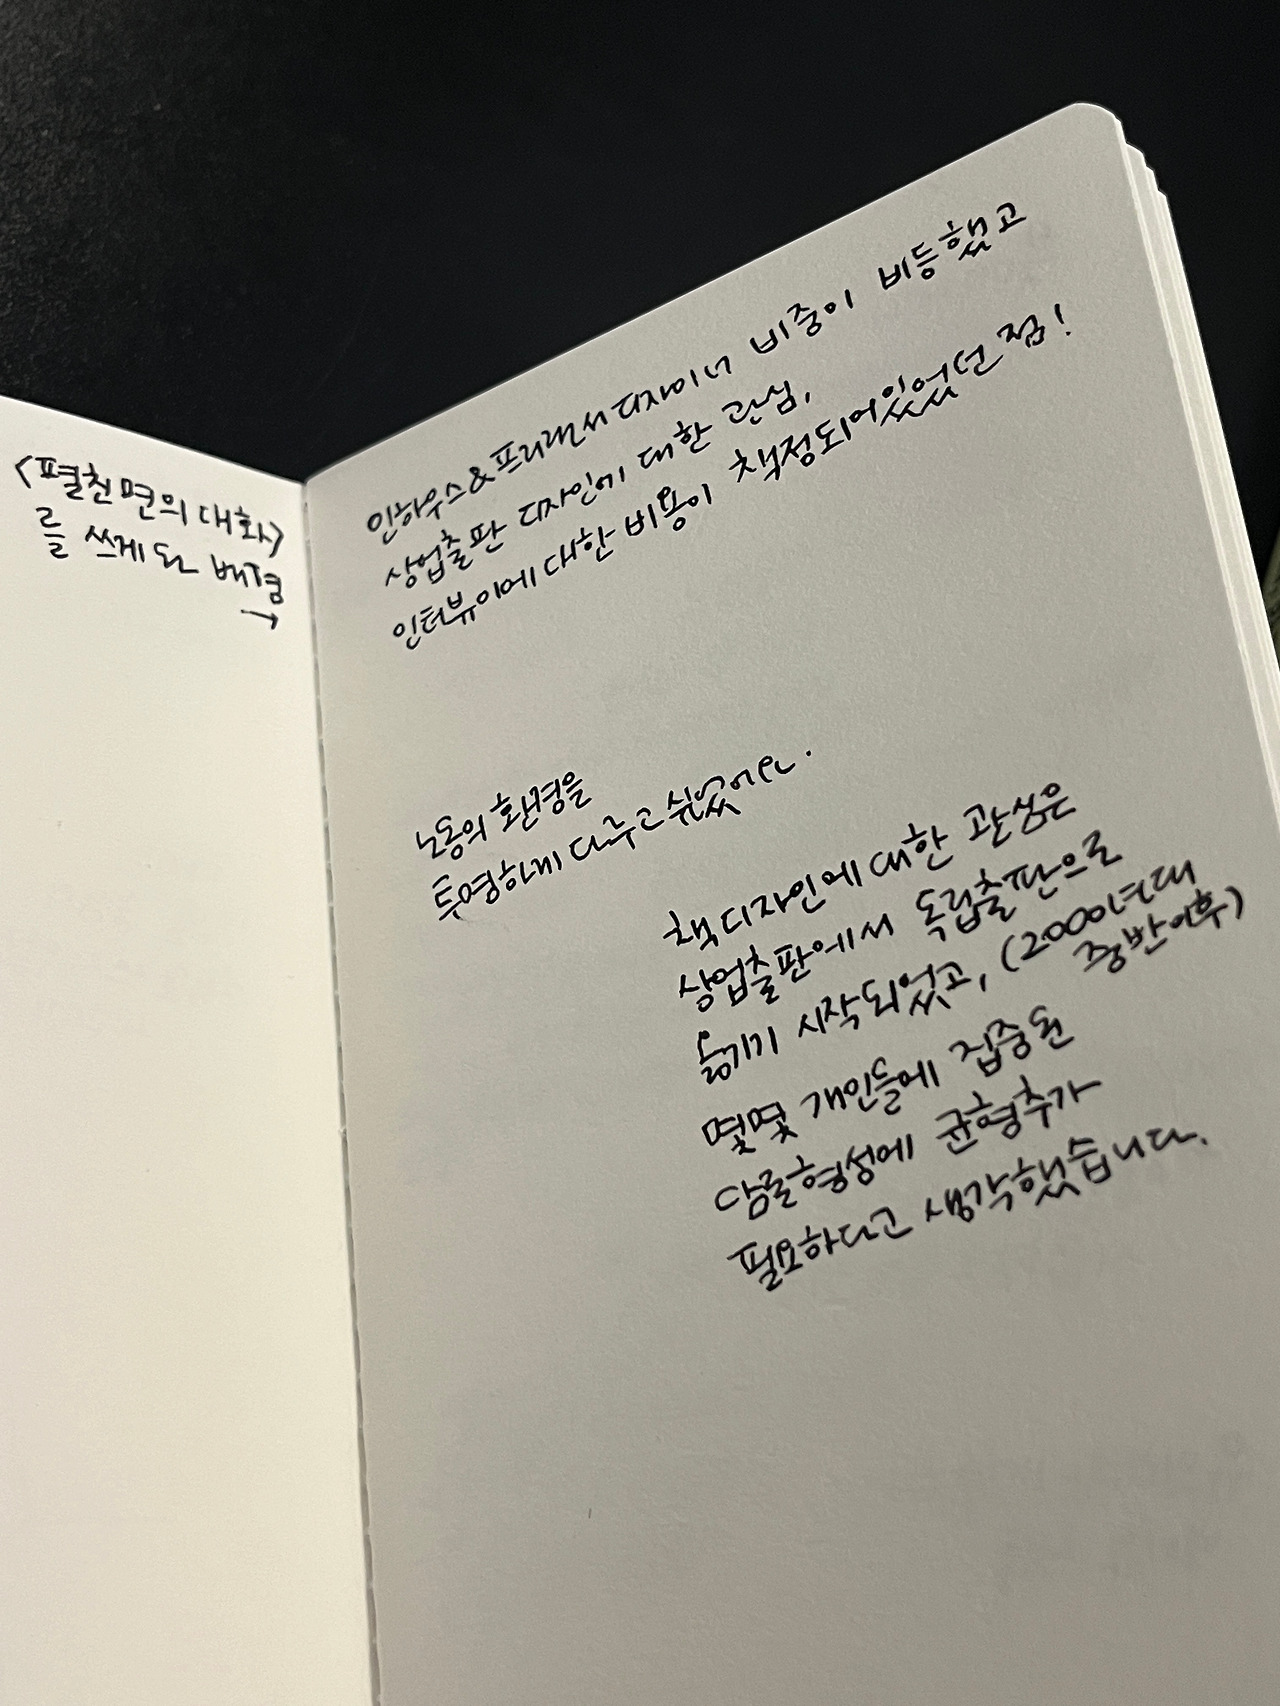 <펼친면의 대화>
를 쓰게 된 배경
→
인하우스&프리랜서 디자이너 비중이 비등했고
상업출판 디자인에 대한 관심,
인터뷰이에 대한 비용이 책정되어있었던 점!
노동의 환경을
투명하게 다루고 싶었어요.
책디자인에 대한 관심은
상업출판에서 독립출판으로
옮기기 시작되었고, (2000년대
중반이후)
몇몇 개인들에 집중된
담론형성에 균형추가
필요하다고 생각했습니다.